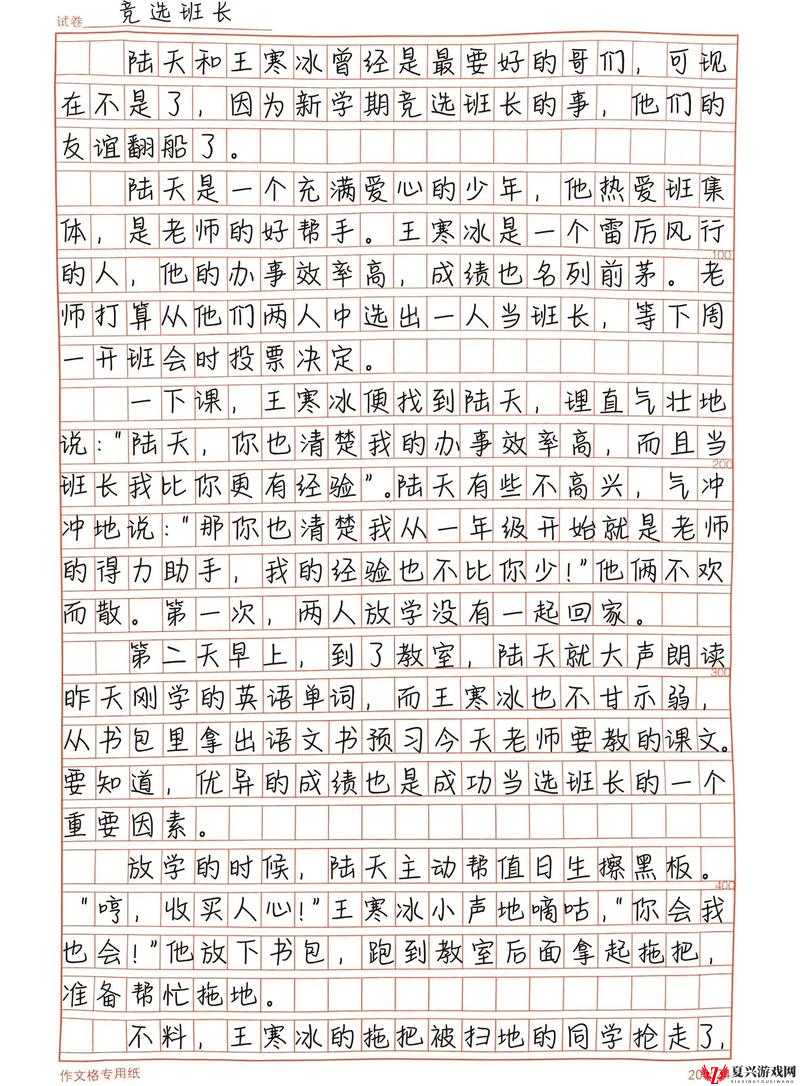 试卷 竞选班长
陆天和王寒冰曾经是最要好的哥们，可现
在不是了，因为新学期竞选班长的事，他们的
友谊翻船了。
陆天是一个充满爱心的少年，他热爱班集
体，是老师的好帮手。王寒冰是一个雷厉风行
100
的人，他的办事效率高，成绩也名列前茅。老
师打算从他们两人中选出一人当班长，等下周
一开班会时投票决定。
一下课，王寒冰便找到陆天，理直气壮地
说："陆天，你也清楚我的办事效率高，而且当
200
班长我比你更有经验"。陆天有些不高兴，气冲
冲地说："那你也清楚我从一年级开始就是老师
的得力助手，我的经验也不比你少！"他俩不欢
而散。第一次，两人放学没有一起回家。
第二天早上，到了教室，陆天就大声朗读
300
昨天刚学的英语单词，而王寒冰也不甘示弱，
从书包里拿出语文书预习今天老师要教的课文。
要知道，优异的成绩也是成功当选班长的一个
重要因素。
放学的时候，陆天主动帮值日生擦黑板。
400
"哼，收买人心！"王寒冰小声地嘀咕，"你会我
也会！"他放下书包，跑到教室后面拿起拖把，
准备帮忙拖地。
不料，王寒冰的拖把被扫地的同学抢走了，
作文格专用纸
夏兴游戏网